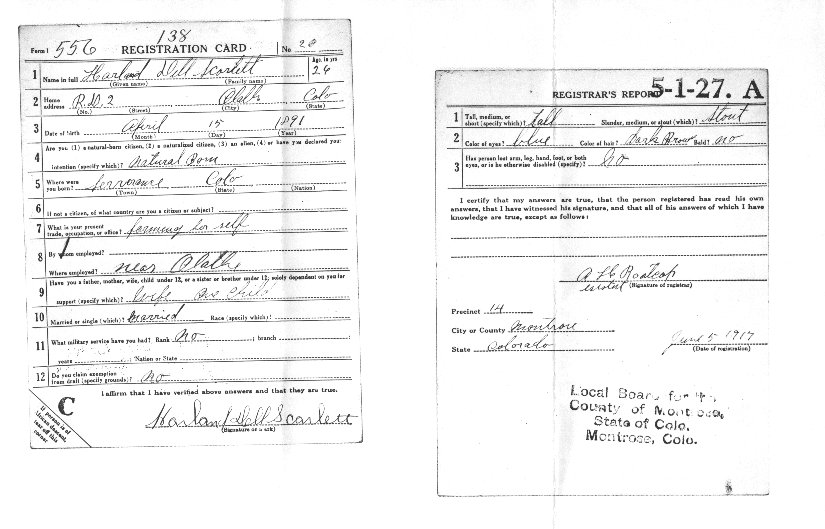 138
Form 1 556 REGISTRATION CARD No 28
1 Name in full Harland Dell Scarlett Age, in yrs 26
(Given name) (Family name)
2 Home address R.D. 2 Olathe Colo
(No.) (Street) (City) (State)
3 Date of birth April 15 1891
(Month) (Day) (Year)
4 Are you (1) a natural-born citizen, (2) a naturalized citizen, (3) an alien, (4) or have you declared your
intention (specify which)? Natural Born
5 Where were you born? Colo
(Town) (State) (Nation)
6 If not a citizen, of what country are you a citizen or subject?
7 What is your present trade, occupation, or office? farming for self
8 By whom employed?
Where employed? near Olathe
9 Have you a father, mother, wife, child under 12, or a sister or brother under 12, solely dependent on you for
support (specify which)? Wife one child
10 Married or single (which)? Married Race (specify which)?
11 What military service have you had? Rank No ; branch
years ; Nation or State
12 Do you claim exemption from draft (specify grounds)? No
I affirm that I have verified above answers and that they are true.
C
If person is of African descent, tear off this corner
Harland Dell Scarlett
(Signature or mark)
REGISTRAR'S REPORT 5-1-27. A
1 Tall, medium, or short (specify which)? tall Slender, medium, or stout (which)? Stout
2 Color of eyes? blue Color of hair? Dark Brown Bald? no
3 Has person lost arm, leg, hand, foot, or both
eyes, or is he otherwise disabled (specify)? No
I certify that my answers are true, that the person registered has read his own
answers, that I have witnessed his signature, and that all of his answers of which I have
knowledge are true, except as follows:
(Signature of registrar)
Precinct 14
City or County Montrose
State Colorado
June 5 1917
(Date of registration)
Local Board for the
County of Montrose,
State of Colo.
Montrose, Colo.